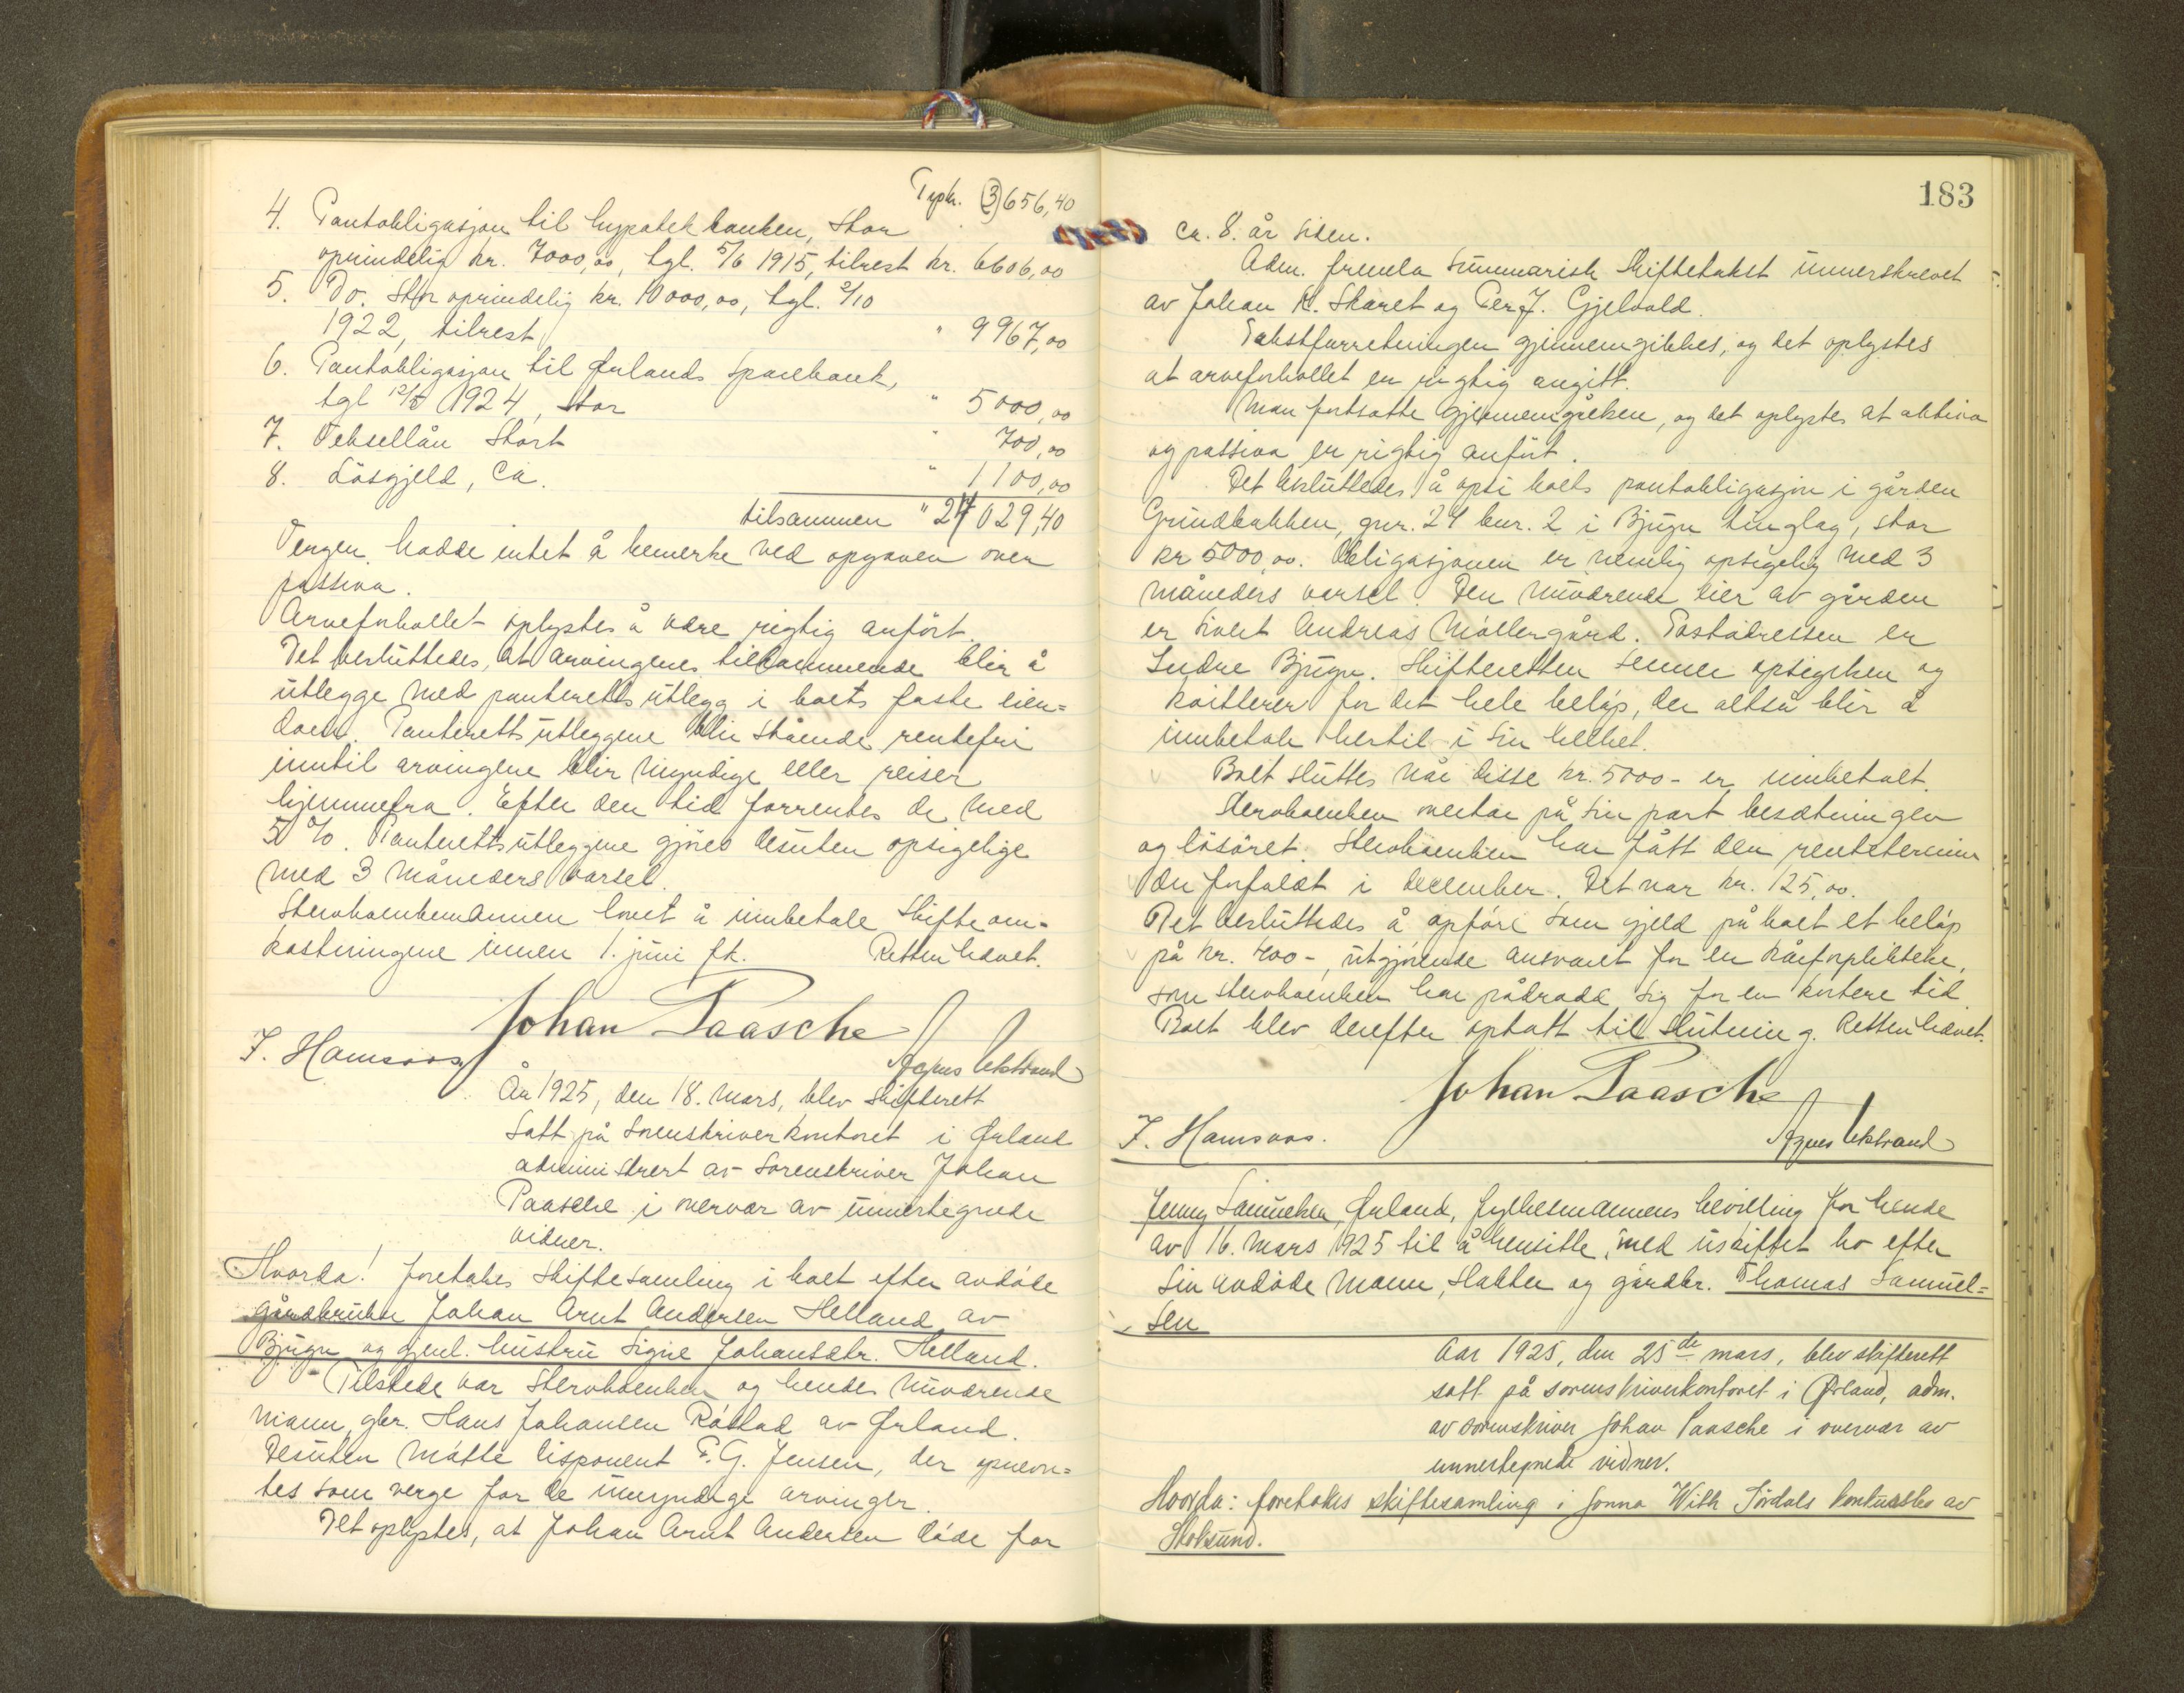 Trpk. 3656,40
4. Pantobligasjon til hypotekbanken, stor
oprindelig kr. 7000,00, tgl. 5/6 1915, tilrest kr. 6606,00
5. Do. stor oprindelig kr. 10000,00, tgl. 2/10
1922, tilrest " 9967,00
6. Pantobligasjon til Ørlands Sparebank,
tgl 12/5 1924, stor " 5000,00
7. Veksellån stort " 700,00
8. Løsgjeld, ca. " 1100,00
tilsammen " 27029,40
Vergen hadde intet å bemerke ved opgaven over
passiva.
Arveforholdet oplystes å være rigtig anført.
Det besluttedes, at arvingenes tilkommende blir å
utlegge med panteretts utlegg i boets faste eien=
dom. Panterettsutleggene blir stående rentefri
inntil arvingene blir myndige eller reiser
hjemmefra. Efter den tid forrentes de med
5 %. Panterettsutleggene gjøres desuten opsigelige
med 3 måneders varsel.
Stervboenkemannen lovet å innbetale skifteom-
kostningene innen 1. juni fk. Retten hævet.
Johan Paasche
F. Hamsaas Agnes Ukstrand
År 1925, den 18. mars, blev skifterett
satt på sorenskriverkontoret i Ørland
administrert av sorenskriver Johan
Paasche i overvær av unnertegnede
vidner.
Hvorda! foretokes skiftesamling i boet efter avdøde
gårdbruker Johan Arnt Andersen Helland av
Bjugn og gjenl. hustru Signe Johansdtr. Helland.
Tilstede var stervboenken og hendes nuværende
mann, gbr. Hans Johansen Råstad av Ørland.
Desuten møtte disponent F. G. Jensen, der opnevn=
tes som verge for de umyndige arvinger.
Det oplystes, at Johan Arnt Andersen døde for
183
ca. 8. år siden.
Adm. fremla summarisk skiftetakst unnerskrevet
av Johan K. Skaret og Per J. Gjelvold.
Takstforretningen gjennemgikkes, og det oplystes
at arveforholdet er rigtig angitt.
Man fortsatte gjennemgåelsen, og det oplystes at aktiva
og passiva er rigtig anført.
Det besluttedes å opsi boets pantobligasjon i gården
Grundbakken, gnr. 24 bnr. 2 i Bjugn tinglag, stor
kr 5000,00. Obligasjonen er nemlig opsigelig med 3
måneders varsel. Den nuværende eier av gården
er Sivert Andreas Møllergård. Postadressen er
Indre Bjugn. Skifteretten senner opsigelsen og
kvitterer for det hele beløp, der altså blir å
innbetale hertil i sin helhet.
Boet sluttes når disse kr. 5000- er innbetalt.
Stervboenken overtar på sin part besætningen
og løsøret. Stervboenken har fått den rentetermin
der forfaldt i december. Det var kr. 125,00.
Det besluttedes å opføre som gjeld på boet et beløp
på kr. 400-, utgjørende ansvaret for en kårforpliktelse,
som stervboenken har pådradd sig for en kortere tid.
Boet blev derefter optatt til slutning. Retten hævet.
Johan Paasche
F. Hamsaas. Agnes Ukstrand
Jenny Samuelsen, Ørland, fylkesmannens bevilling for hende
av 16. mars 1925 til å hensitte med uskiftet bo efter
sin avdøde mann, slakter og gårdbr. Thomas Samuel=
sen
Aar 1925, den 25de mars, blev skifterett
satt på sorenskriverkontoret i Ørland, adm.
av sorenskriver Johan Paasche i overvær av
unnertegnede vidner.
Hvorda: foretokes skiftesamling i Jonna With Sørdals konkursbo av
Stoksund.